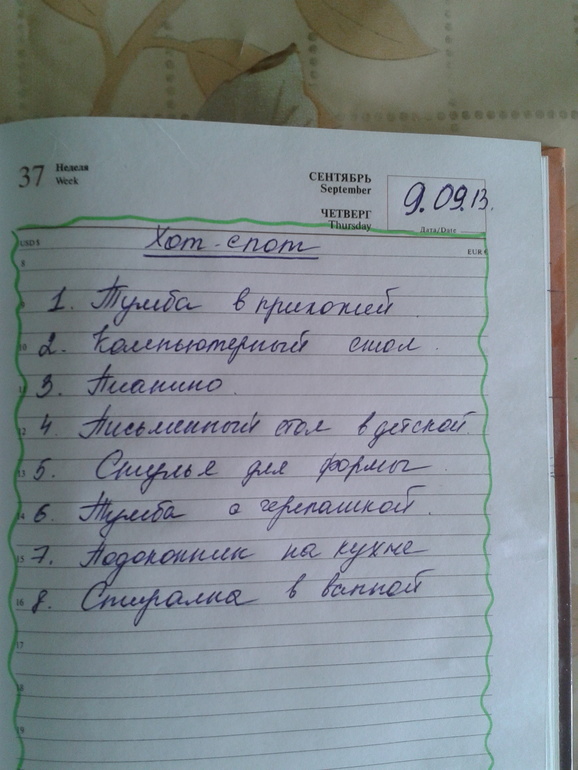 37 Неделя
Week
СЕНТЯБРЬ
September
ЧЕТВЕРГ
Thursday
9.09.13.
Дата/Date
USD $
EUR €
Хот-спот
8
9 1. Тумба в прихожей.
10 2. Компьютерный стол.
11 3. Пианино.
12 4. Письменный стол в детской.
13 5. Стулья для формы
14 6. Тумба с черепашкой.
15 7. Подоконник на кухне
16 8. Стиралка в ванной
17
18
19